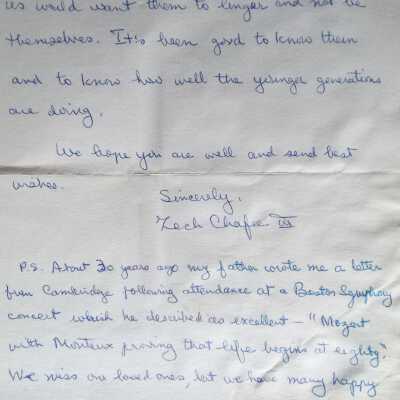 us would want them to linger and not be
themselves. It's been good to know them
and to know how well the younger generations
are doing.
We hope you are well and send best
wishes.
Sincerely,
Zech Chafee III
P.S. About 30 years ago my father wrote me a letter
from Cambridge following attendance at a Boston Symphony
concert which he described as excellent – "Mozart
with Monteux proving that life begins at eighty."
We miss our loved ones, but we have many happy